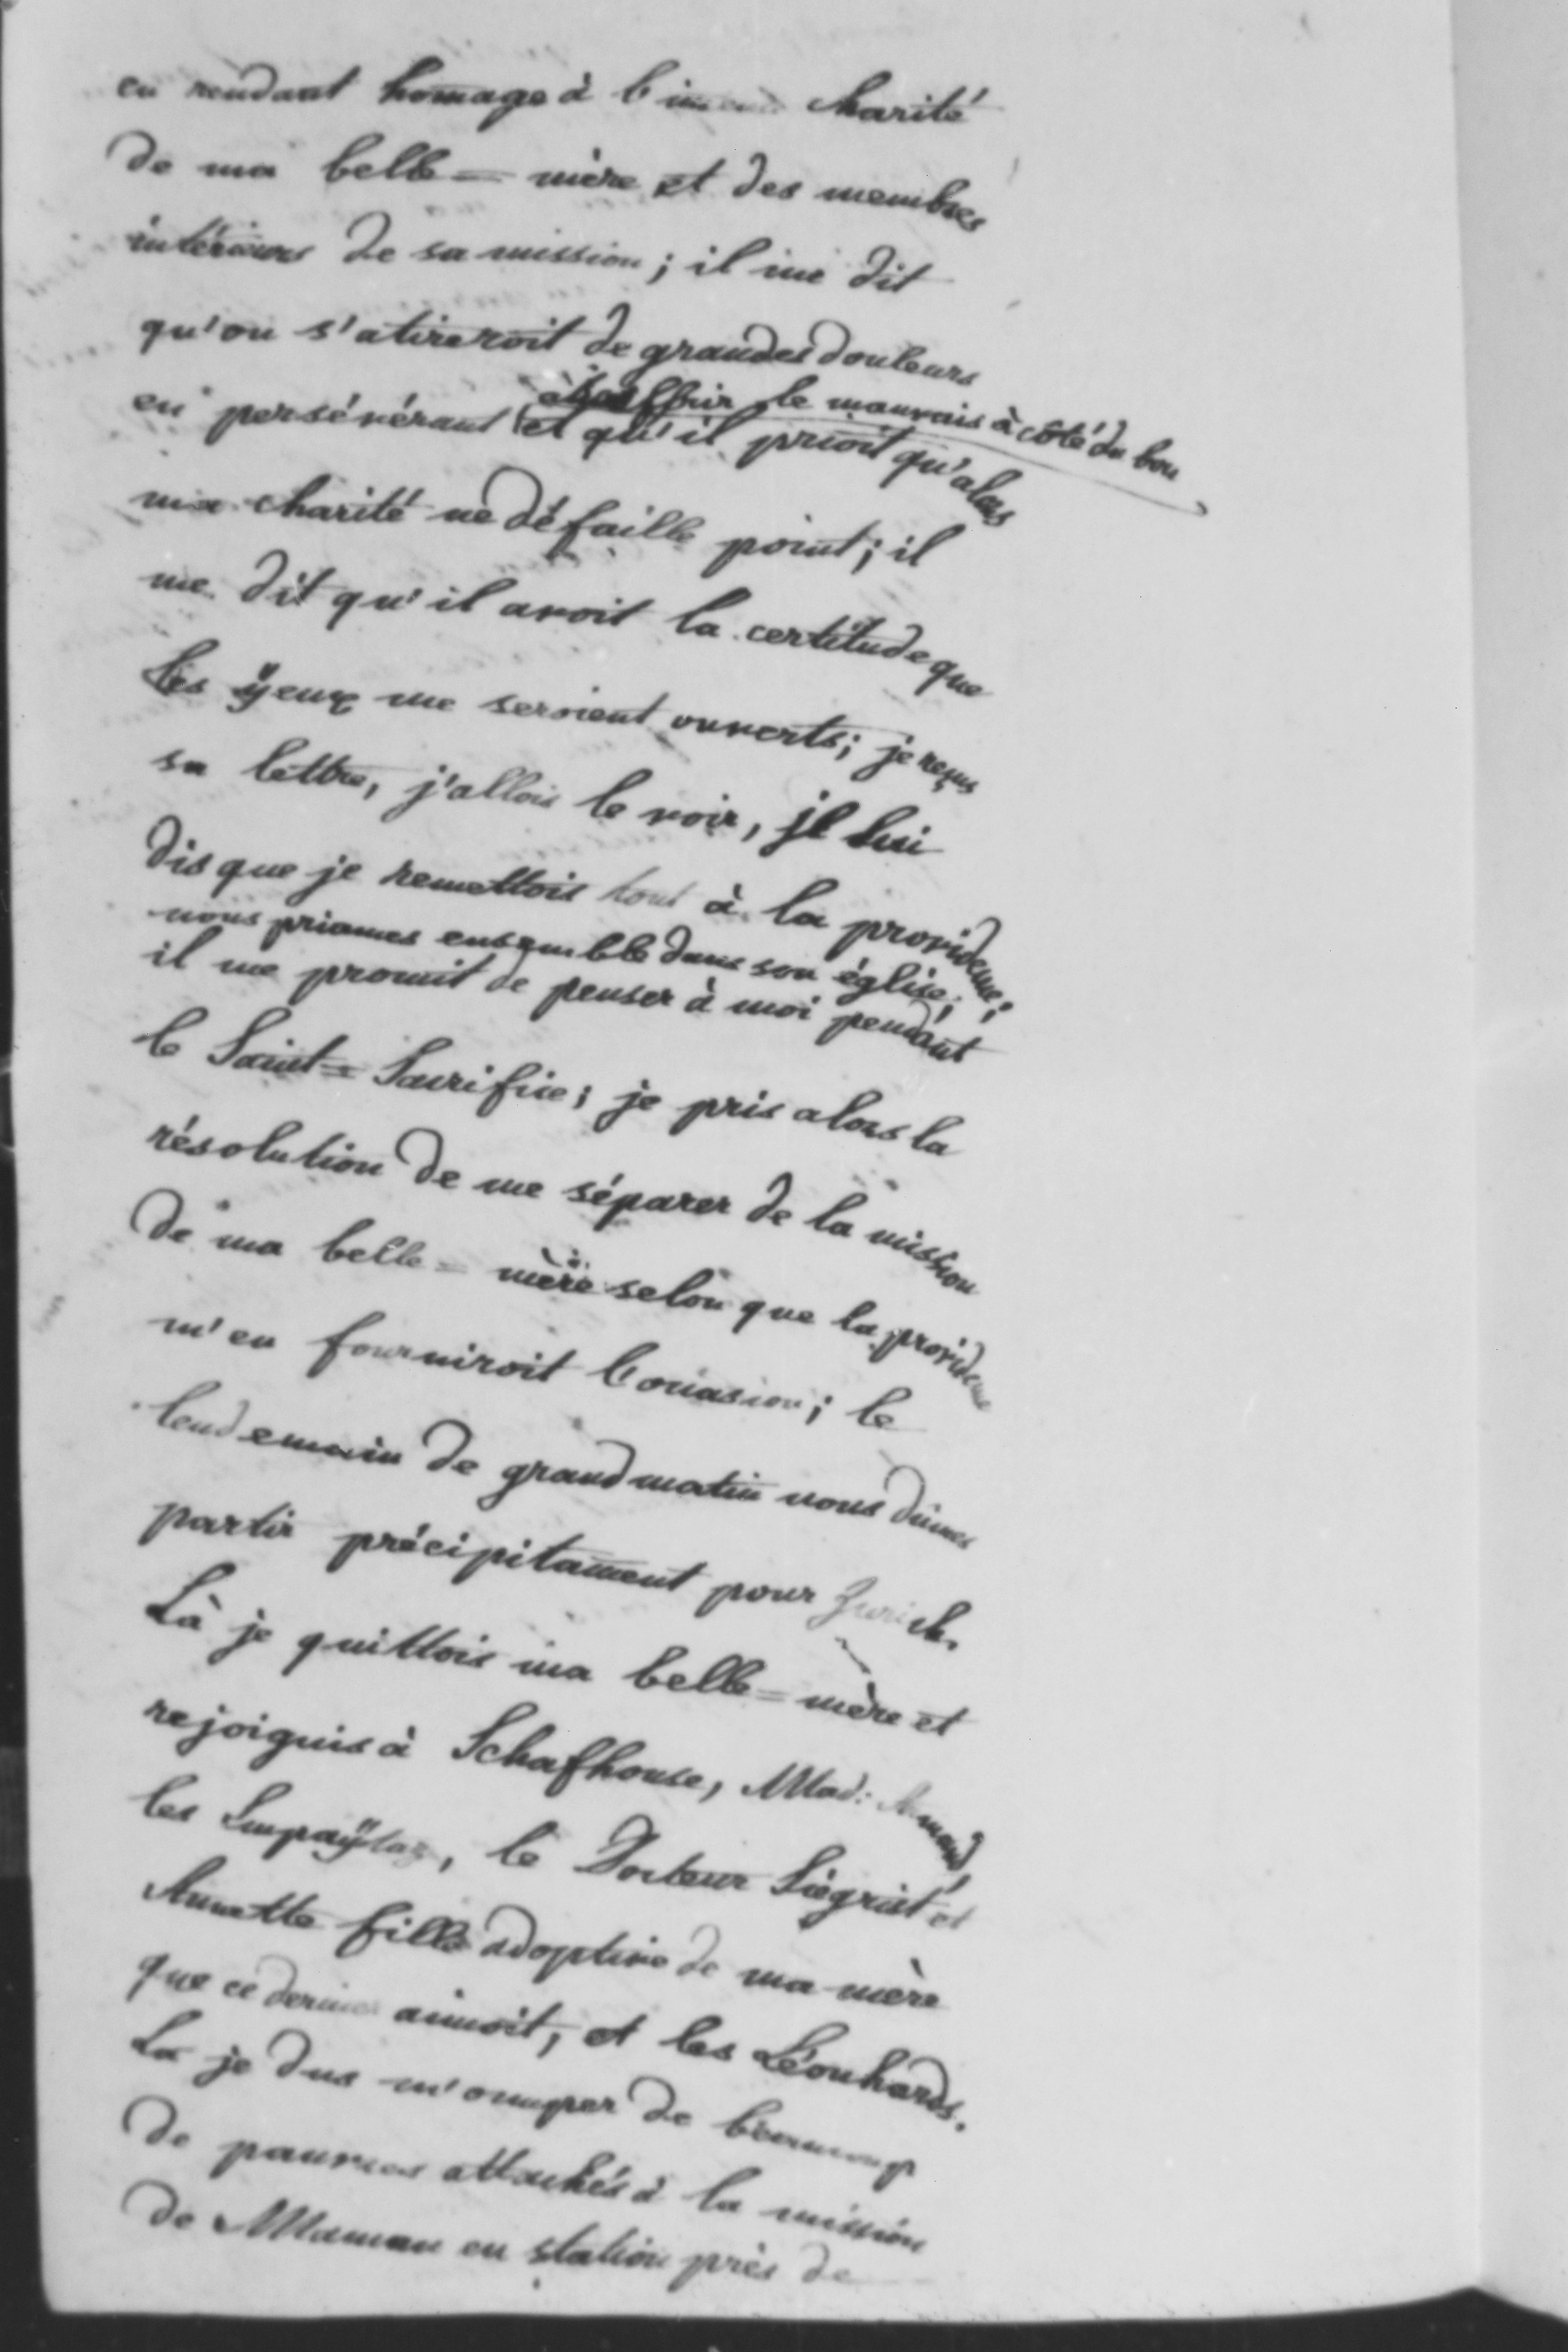 en rendant homage à l'imense charité
de ma belle=mère et des membres
intérieurs de sa mission; il me dit
qu'on s'atireroit de grandes douleurs
à souffrir le mauvais à côté du bon
en persévérant et qu'il prioit qu'alors
ma charité ne défaille point; il
me dit qu'il avoit la certitude que
les ÿeux me seroient ouverts; je reçus
sa lettre, j'allois le voir, je lui
dis que je remettois tout à la providence;
nous priames ensemble dans son église;
il me promit de penser à moi pendant
le Saint=Sacrifice; je pris alors la
résolution de me séparer de la mission
de ma belle=mère selon que la providence
m'en fourniroit l'occasion; le
lendemain de grand matin nous dûmes
partir précipitament pour Zurich.
Là je quittois ma belle=mère et
rejoignis à Schafhouse, Mad: Armand,
les Empaÿtaz, le Docteur Siègrist et
Annette fille adoptive de ma mère
que ce dernier aimoit, et les Léonhards.
Là je dus m'occuper de beaucoup
de pauvres attachés à la mission
de Maman en station près de